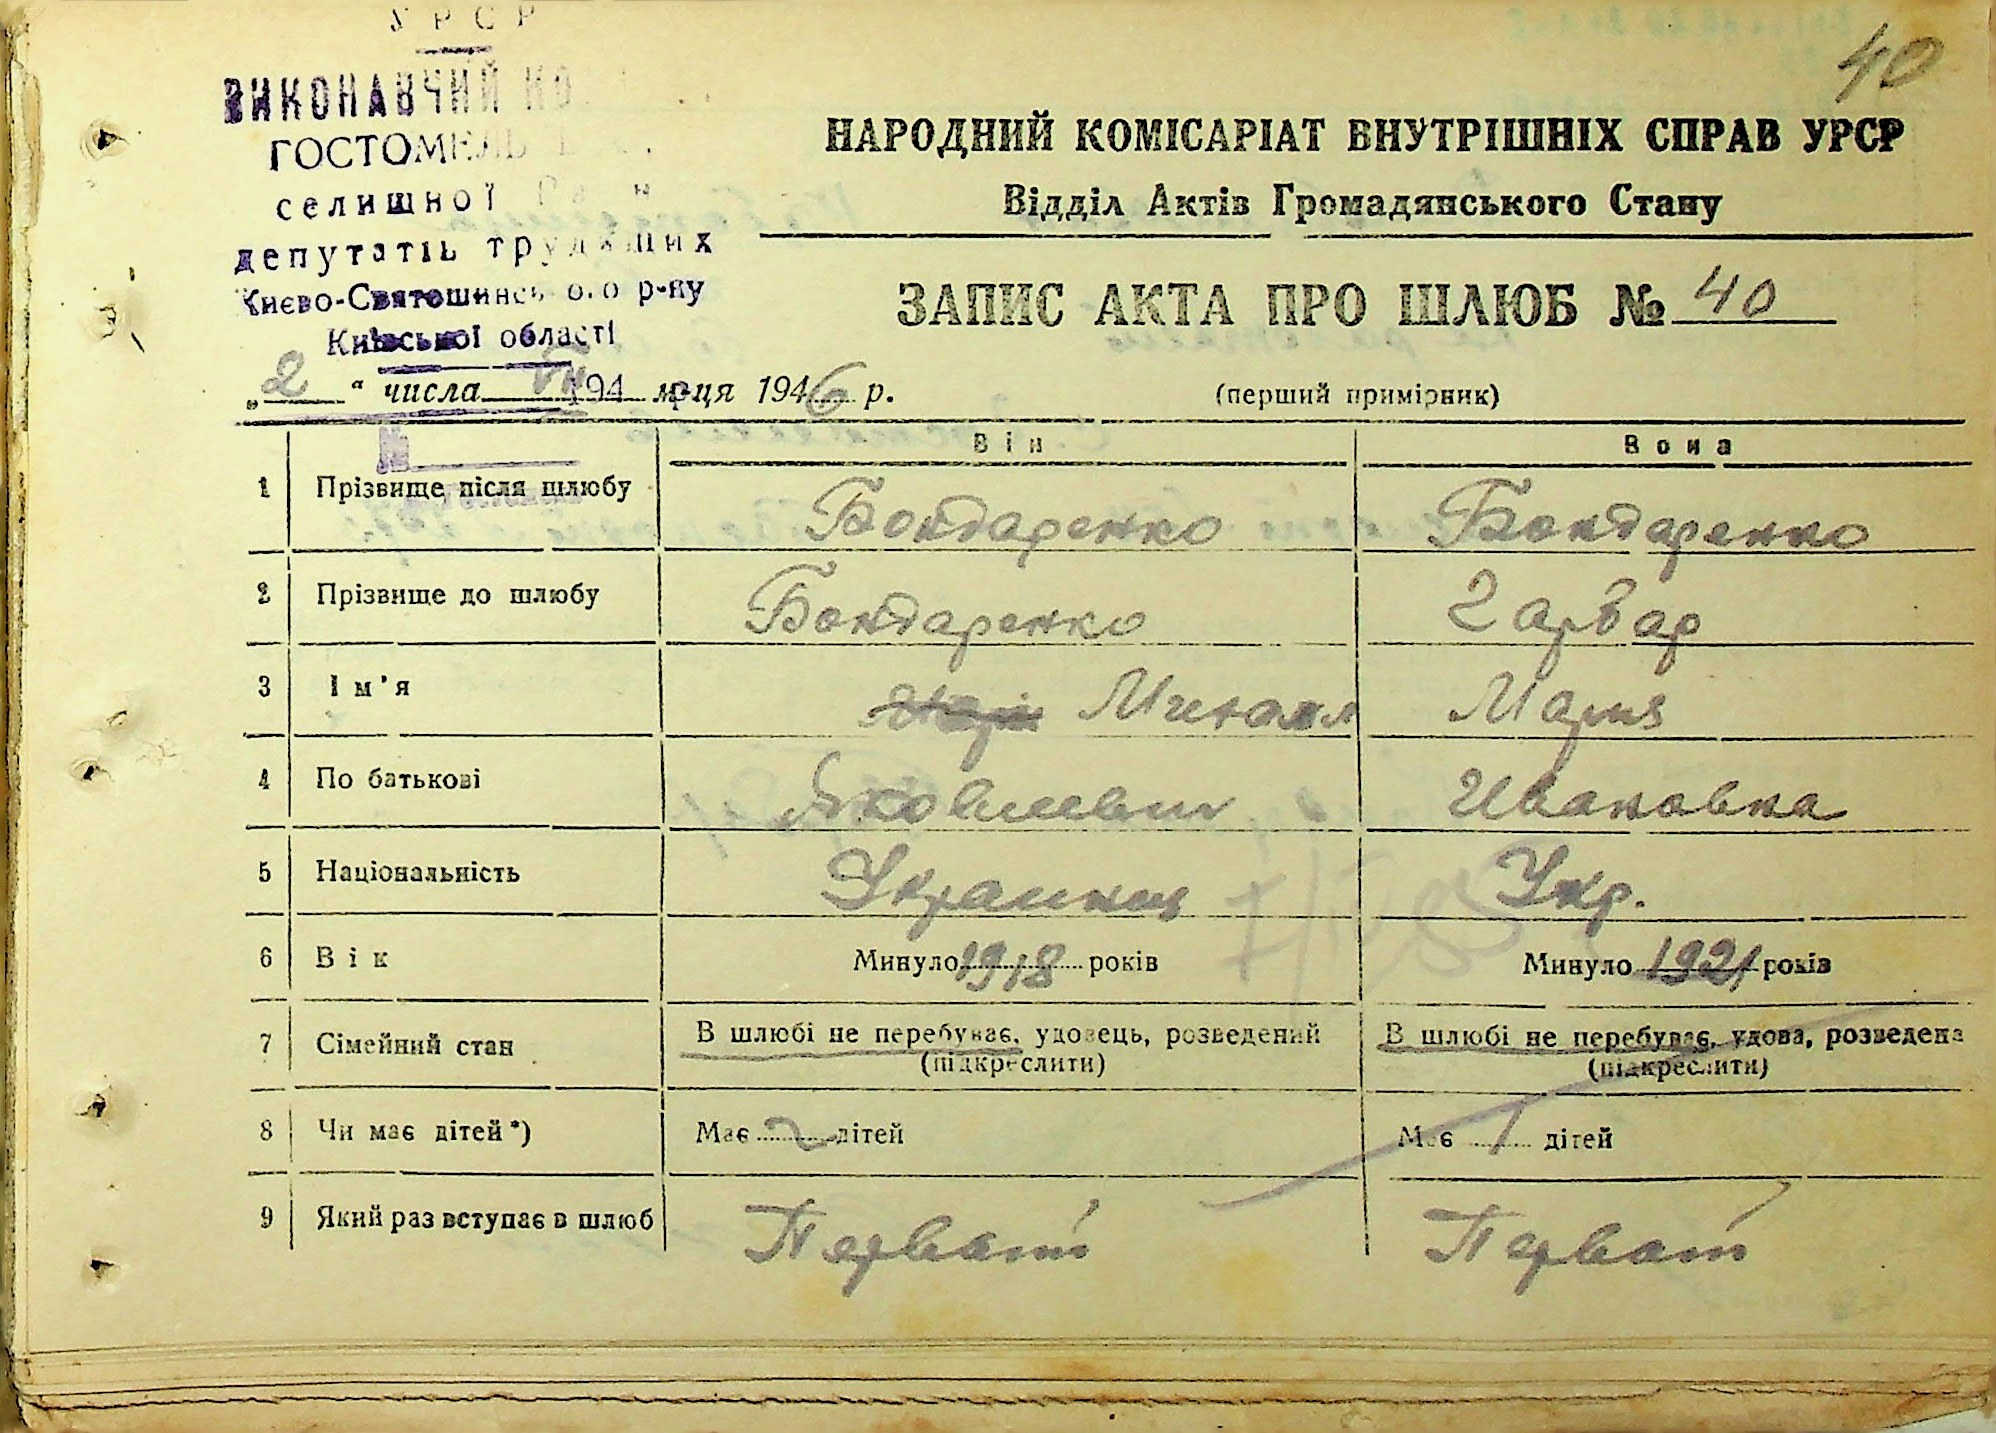 УРСР
40
ВИКОНАВЧИЙ
ГОСТОМЕЛЬ
селищної
депутатів трудящих
Києво-Святошинського р-ну
Київської області
НАРОДНИЙ КОМІСАРІАТ ВНУТРІШНІХ СПРАВ УРСР
Відділ Актів Громадянського Стану
ЗАПИС АКТА ПРО ШЛЮБ № 40
„2“ числа VII 194 м-ця 1946 р.
(перший примірник)
№
Він Вона
1 Прізвище після шлюбу Бондаренко Бондаренко
2 Прізвище до шлюбу Бондаренко Гарбар
3 Ім'я Михаил Мария
4 По батькові Яковлевич Ивановна
5 Національність Украинец Укр.
6 Вік Минуло 1918 років Минуло 1921 років
7 Сімейний стан В шлюбі не перебуває, удовець, розведений В шлюбі не перебуває, удова, розведена
(підкреслити) (підкреслити)
8 Чи має дітей*) Має 2 дітей Має 1 дітей
9 Який раз вступає в шлюб Первый Первый